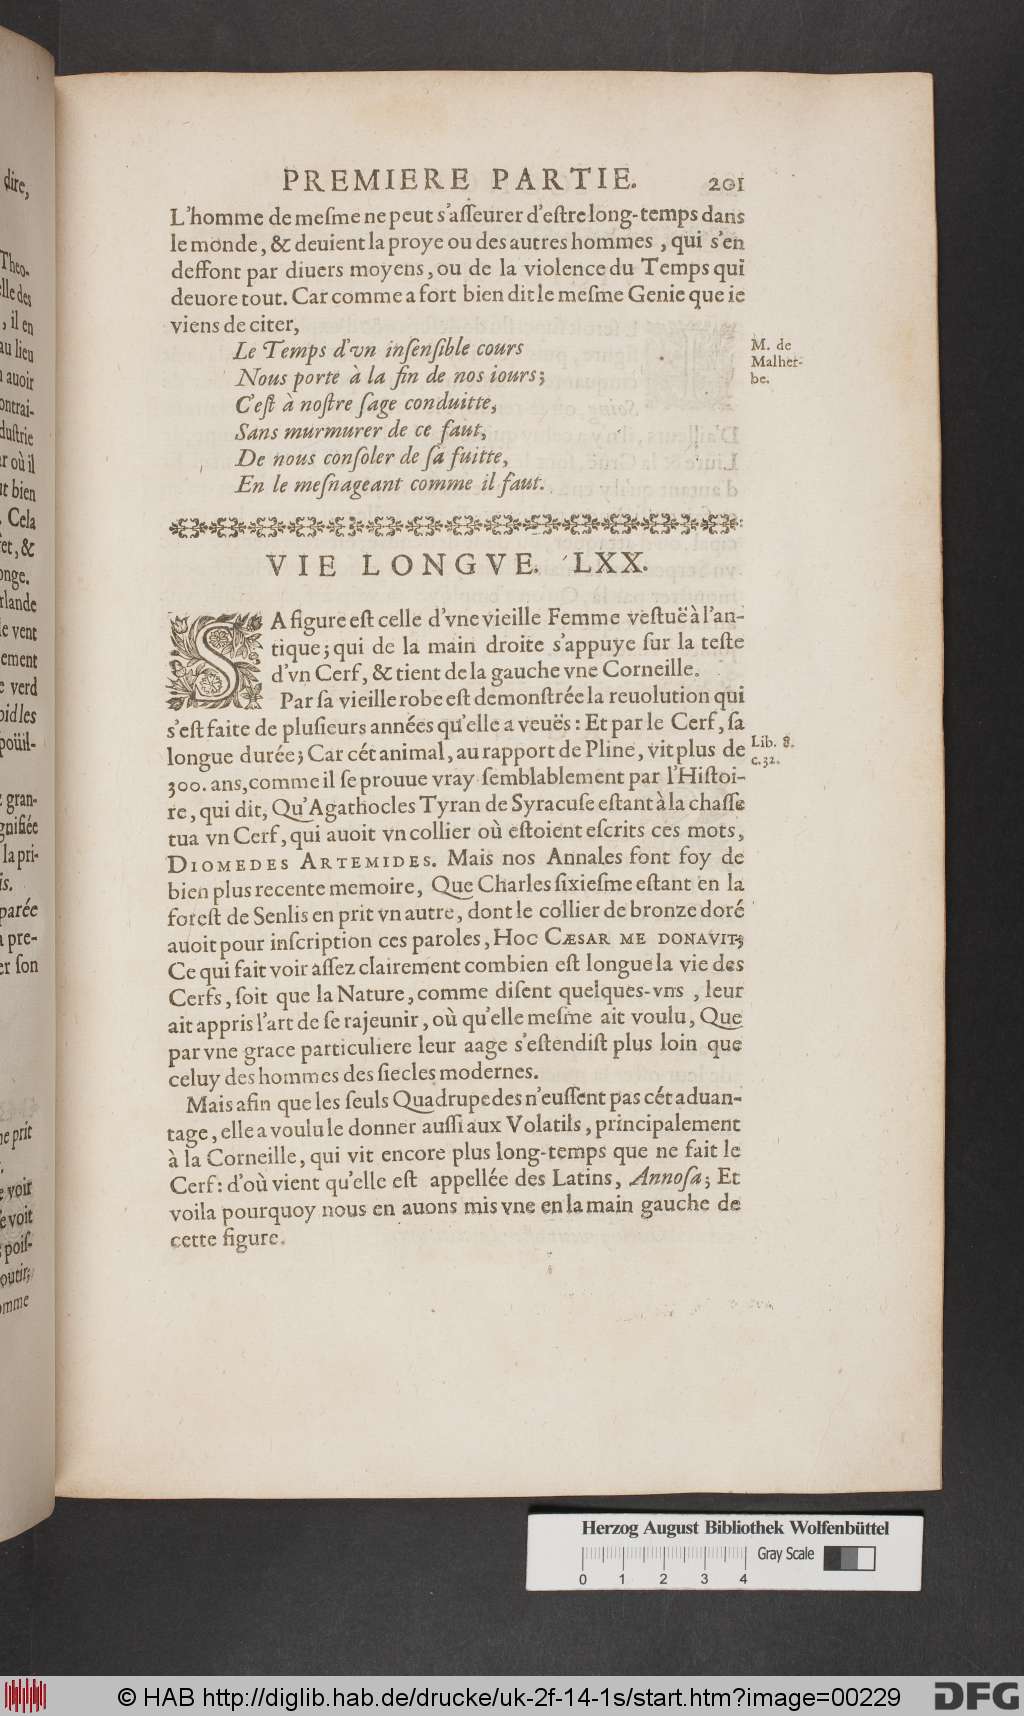 PREMIERE PARTIE. 201
L'homme de meſme ne peut s'aſſeurer d'eſtre long-temps dans
le monde, & deuient la proye ou des autres hommes, qui s'en
deffont par diuers moyens, ou de la violence du Temps qui
deuore tout. Car comme a fort bien dit le meſme Genie que ie
viens de citer,
Le Temps d'vn inſenſible cours
Nous porte à la fin de nos iours;
C'eſt à noſtre ſage conduitte,
Sans murmurer de ce faut,
De nous conſoler de ſa fuitte,
En le meſnageant comme il faut.
M. de
Malher-
be.
VIE LONGVE. LXX.
SA figure eſt celle d'vne vieille Femme veſtuë à l'an-
tique; qui de la main droite s'appuye ſur la teſte
d'vn Cerf, & tient de la gauche vne Corneille.
Par ſa vieille robe eſt demonſtrée la reuolution qui
s'eſt faite de pluſieurs années qu'elle a veuës: Et par le Cerf, ſa
longue durée; Car cét animal, au rapport de Pline, vit plus de
300. ans, comme il ſe prouue vray ſemblablement par l'Hiſtoi-
re, qui dit, Qu'Agathocles Tyran de Syracuſe eſtant à la chaſſe
tua vn Cerf, qui auoit vn collier où eſtoient eſcrits ces mots,
DIOMEDES ARTEMIDES. Mais nos Annales font foy de
bien plus recente memoire, Que Charles ſixieſme eſtant en la
foreſt de Senlis en prit vn autre, dont le collier de bronze doré
auoit pour inſcription ces paroles, HOC CÆSAR ME DONAVIT;
Ce qui fait voir aſſez clairement combien eſt longue la vie des
Cerfs, ſoit que la Nature, comme diſent quelques-vns, leur
ait appris l'art de ſe rajeunir, où qu'elle meſme ait voulu, Que
par vne grace particuliere leur aage s'eſtendiſt plus loin que
celuy des hommes des ſiecles modernes.
Lib. 8.
c. 32.
Mais afin que les ſeuls Quadrupedes n'euſſent pas cét aduan-
tage, elle a voulu le donner auſſi aux Volatils, principalement
à la Corneille, qui vit encore plus long-temps que ne fait le
Cerf: d'où vient qu'elle eſt appellée des Latins, Annoſa; Et
voila pourquoy nous en auons mis vne en la main gauche de
cette figure.
Herzog August Bibliothek Wolfenbüttel
Gray Scale
0 1 2 3 4
© HAB http://diglib.hab.de/drucke/uk-2f-14-1s/start.htm?image=00229
DFG